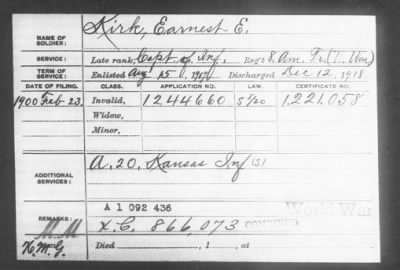 NAME OF SOLDIER: Kirk, Earnest E.
SERVICE: Late rank, Capt of Inf, Reg't 8, Am. Tr.
TERM OF SERVICE: Enlisted Aug 15, 1917 Discharged Dec 12, 1918
DATE OF FILING. CLASS. APPLICATION NO. LAW. CERTIFICATE NO.
1900 Feb 23. Invalid, 1244660 1,221,058
Widow,
Minor,
ADDITIONAL SERVICES: A. 20, Kansas Inf (S)
A 1 092 436 World War
REMARKS: X.C. 866,073
H.M.G. Died , 1 , at